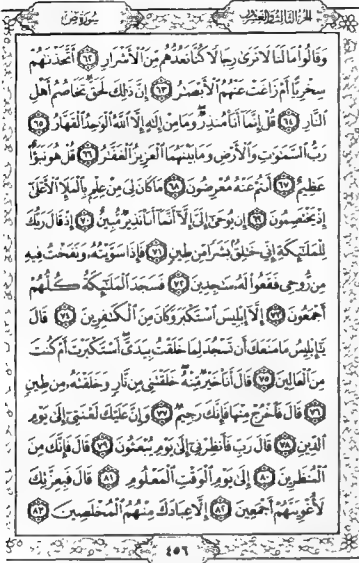 الجزء الثالث والعشرون سورة ص
وَقَالُوا۟ مَا لَنَا لَا نَرَىٰ رِجَالًا كُنَّا نَعُدُّهُم مِّنَ ٱلْأَشْرَارِ ٦٢ أَتَّخَذْنَٰهُمْ
سِخْرِيًّا أَمْ زَاغَتْ عَنْهُمُ ٱلْأَبْصَٰرُ ٦٣ إِنَّ ذَٰلِكَ لَحَقٌّ تَخَاصُمُ أَهْلِ
ٱلنَّارِ ٦٤ قُلْ إِنَّمَآ أَنَا۠ مُنذِرٌ وَمَا مِنْ إِلَٰهٍ إِلَّا ٱللَّهُ ٱلْوَٰحِدُ ٱلْقَهَّارُ ٦٥
رَبُّ ٱلسَّمَٰوَٰتِ وَٱلْأَرْضِ وَمَا بَيْنَهُمَا ٱلْعَزِيزُ ٱلْغَفَّٰرُ ٦٦ قُلْ هُوَ نَبَؤٌا۟
عَظِيمٌ ٦٧ أَنتُمْ عَنْهُ مُعْرِضُونَ ٦٨ مَا كَانَ لِىَ مِنْ عِلْمٍۭ بِٱلْمَلَإِ ٱلْأَعْلَىٰٓ
إِذْ يَخْتَصِمُونَ ٦٩ إِن يُوحَىٰٓ إِلَىَّ إِلَّآ أَنَّمَآ أَنَا۠ نَذِيرٌ مُّبِينٌ ٧٠ إِذْ قَالَ رَبُّكَ
لِلْمَلَٰٓئِكَةِ إِنِّى خَٰلِقٌۢ بَشَرًا مِّن طِينٍ ٧١ فَإِذَا سَوَّيْتُهُۥ وَنَفَخْتُ فِيهِ
مِن رُّوحِى فَقَعُوا۟ لَهُۥ سَٰجِدِينَ ٧٢ فَسَجَدَ ٱلْمَلَٰٓئِكَةُ كُلُّهُمْ
أَجْمَعُونَ ٧٣ إِلَّآ إِبْلِيسَ ٱسْتَكْبَرَ وَكَانَ مِنَ ٱلْكَٰفِرِينَ ٧٤ قَالَ
يَٰٓإِبْلِيسُ مَا مَنَعَكَ أَن تَسْجُدَ لِمَا خَلَقْتُ بِيَدَىَّ أَسْتَكْبَرْتَ أَمْ كُنتَ
مِنَ ٱلْعَالِينَ ٧٥ قَالَ أَنَا۠ خَيْرٌ مِّنْهُ خَلَقْتَنِى مِن نَّارٍ وَخَلَقْتَهُۥ مِن طِينٍ
٧٦ قَالَ فَٱخْرُجْ مِنْهَا فَإِنَّكَ رَجِيمٌ ٧٧ وَإِنَّ عَلَيْكَ لَعْنَتِىٓ إِلَىٰ يَوْمِ
ٱلدِّينِ ٧٨ قَالَ رَبِّ فَأَنظِرْنِىٓ إِلَىٰ يَوْمِ يُبْعَثُونَ ٧٩ قَالَ فَإِنَّكَ مِنَ
ٱلْمُنظَرِينَ ٨٠ إِلَىٰ يَوْمِ ٱلْوَقْتِ ٱلْمَعْلُومِ ٨١ قَالَ فَبِعِزَّتِكَ
لَأُغْوِيَنَّهُمْ أَجْمَعِينَ ٨٢ إِلَّا عِبَادَكَ مِنْهُمُ ٱلْمُخْلَصِينَ ٨٣
٤٥٦